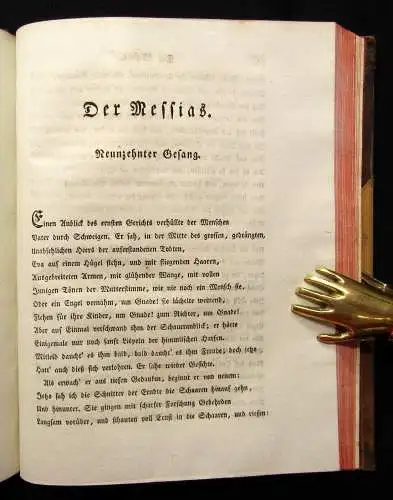 Der Messias.
Neunzehnter Gesang.
Einen Anblick des ernsten Gerichts verhüllte der Menschen
Vater durch Schweigen. Er sah, in der Mitte des grossen, gedrängten,
Unabsehlichen Heers der auferstandenen Todten,
Eva auf einem Hügel stehn, und mit fliegenden Haaren,
Ausgebreiteten Armen, mit glühender Wange, mit vollen
Innigen Tönen der Mutterstimme, wie nie noch ein Mensch sie,
Oder ein Engel vernahm, um Gnade! sie lächelte weinend,
Flehen für ihre Kinder, um Gnade! zum Richter, um Gnade!
Aber auf Einmal verschwand ihm der Schauranblick; er hörte
Einigemale nur noch sanft Lispeln der himmlischen Harfen.
Mitleid daucht' es ihm bald, bald daucht' es ihm Freude; doch jetzo
Hatt' auch dieß sich verlohren. Er sahe wieder Gesichte.
Als erwach' er aus tiefen Gedanken, beginnt er von neuem:
Jetzo sah ich die Schnitter der Erndte die Schaaren hinauf gehn,
Und hinunter. Sie gingen mit scharfer Forschung Gebehrden
Langsam vorüber, und schauten voll Ernst in die Schaaren, und riefen: